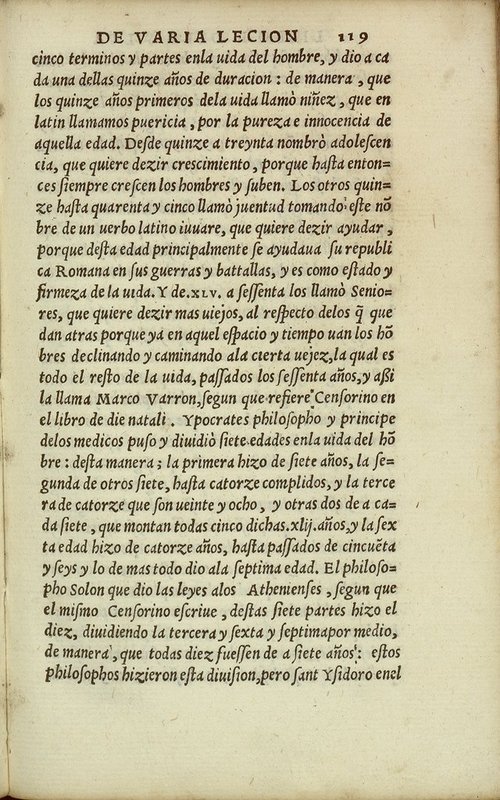 DE VARIA LECION 119
cinco terminos y partes enla uida del hombre, y dio a ca
da una dellas quinze años de duracion : de manera , que
los quinze años primeros dela uida llamò niñez , que en
latin llamamos puericia , por la pureza e innocencia de
aquella edad. Desde quinze a treynta nombrò adolescen
cia, que quiere dezir crescimiento , porque hasta enton=
ces siempre crescen los hombres y suben. Los otros quin=
ze hasta quarenta y cinco llamò juventud tomando este nõ
bre de un uerbo latino iuuare, que quiere dezir ayudar ,
porque desta edad principalmente se ayudaua su republi
ca Romana en sus guerras y battallas, y es como estado y
firmeza de la uida. Y de .XLV. a sessenta los llamò Senio=
res, que quiere dezir mas uiejos, al respecto delos q̃ que
dan atras porque ya en aquel espacio y tiempo uan los hõ
bres declinando y caminando ala cierta uejez, la qual es
todo el resto de la uida, passados los sessenta años, y assi
la llama Marco Varron, segun que refiere Censorino en
el libro de die natali . Ypocrates philosopho y principe
delos medicos puso y diuidiò siete edades enla uida del hõ
bre : desta manera ; la primera hizo de siete años, la se=
gunda de otros siete, hasta catorze complidos, y la terce
ra de catorze que son ueinte y ocho , y otras dos de a ca=
da siete , que montan todas cinco dichas .xlij. años, y la sex
ta edad hizo de catorze años, hasta passados de cincuẽta
y seys y lo de mas todo dio ala septima edad. El philoso=
pho Solon que dio las leyes alos Athenienses , segun que
el mismo Censorino escriue , destas siete partes hizo el
diez, diuidiendo la tercera y sexta y septima por medio,
de manera , que todas diez fuessen de a siete años : estos
philosophos hizieron esta diuision, pero sant Ysidoro enel